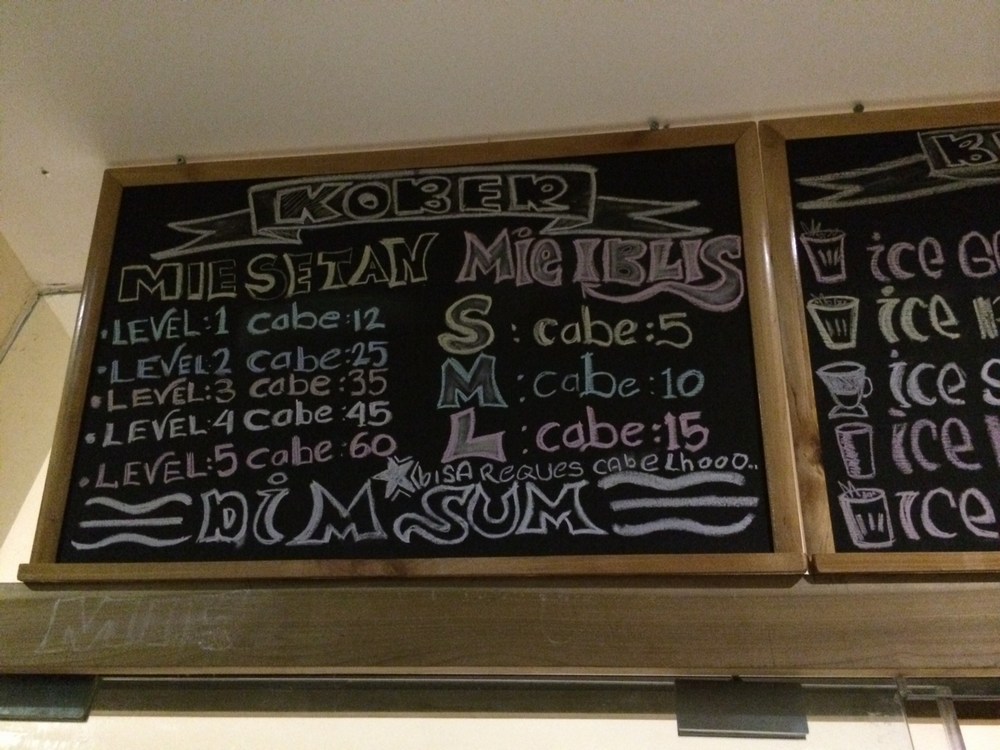 KOBER
MIE SETAN
LEVEL:1 cabe:12
LEVEL:2 cabe:25
LEVEL:3 cabe:35
LEVEL:4 cabe:45
LEVEL:5 cabe:60
Mie IBLIS
S : cabe:5
M : cabe:10
L : cabe:15
(bisa reques cabe Lhooo..
DiM SUM
ice
ice
ice
ice
ice